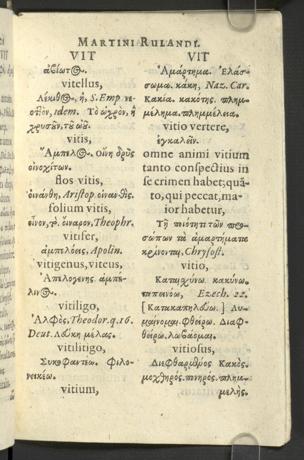 MARTINI RULANDI.
VIT
ἀβίωτος.
vitellus,
Λέκιθος, ἡ, S. Emp. νε-
οττὸν, idem. Τὸ ὠχρὸν, ἢ
χρυσοῦν, τῦ ὠῦ.
vitis,
Ἄμπελος. οἴνη δρῦς
οἰνοχίτων.
flos vitis,
οἰνάνθη, Aristop. οἰνανθὶς.
folium vitis,
οἴναρον, Theophr.
vitifer,
ἀμπελόεις, Apolin.
vitigenus, viteus,
Ἀμπελογενὴς ἀμπέ-
λινος.
vitiligo,
Ἀλφὸς, Theodor. q. 16.
Deut. λεύκη μέλας.
vitilitigo,
Συκοφαντέω. Φιλο-
νεικέω.
vitium,
VIT
Ἁμάρτημα. Ἐλάσ-
σωμα. κάκη, Naz. Car.
Κακία. κακότης. πλημ-
μέλημα. πλημμέλεια.
vitio vertere,
ἐγκαλεῖν.
omne animi vitium
tanto conspectius in
se crimen habet; quā-
to, qui peccat, ma-
ior habetur,
Τῇ ποιότητι τῶν προ-
σώπων τὰ ἁμαρτήματα
κρίνονται, Chrysost.
vitio,
Καταισχύνω. κακύνω.
Ezech. 22.
φθείρω. Διαφ-
θείρω. λωβάομαι.
vitiosus,
Διεφθαρμένος Κακός.
μοχθηρὸς. πονηρὸς. πλημ-
μελής.